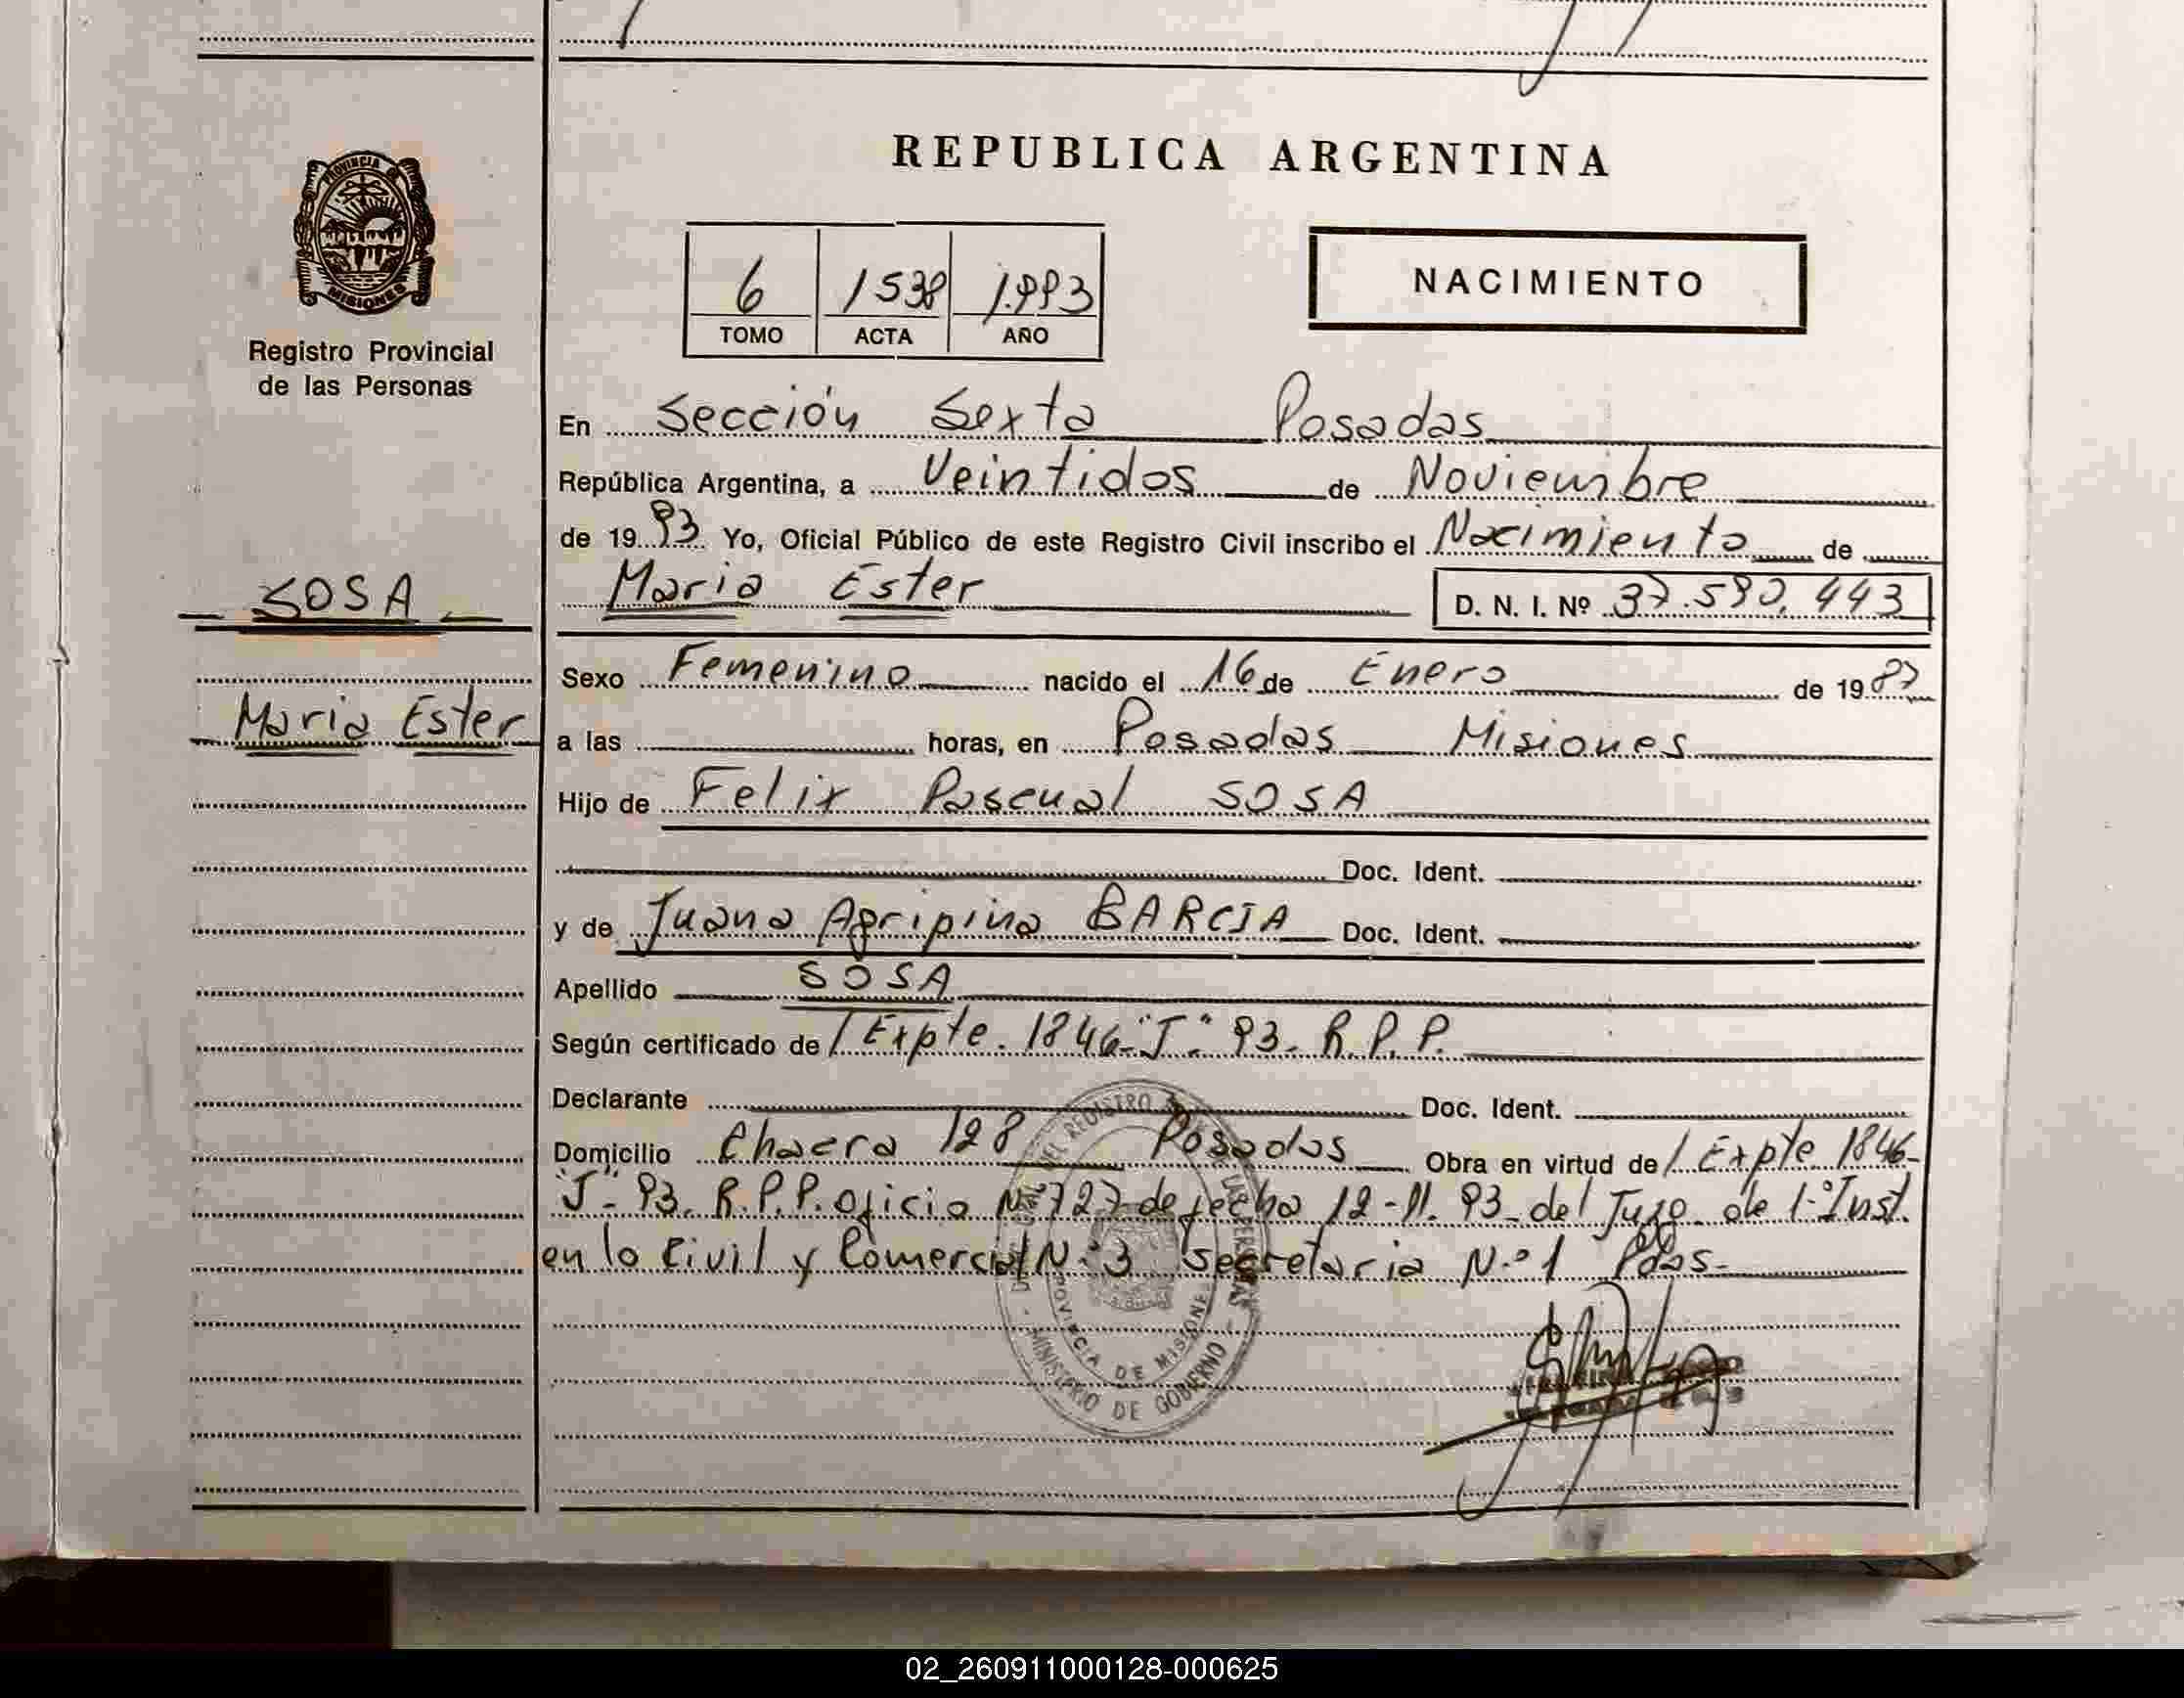 REPUBLICA ARGENTINA
PROVINCIA
MISIONES
Registro Provincial
de las Personas
6 1538 1.993
TOMO ACTA AÑO
NACIMIENTO
En Sección Sexta Posadas
República Argentina, a Veintidos de Noviembre
de 1993 Yo, Oficial Público de este Registro Civil inscribo el Nacimiento de
SOSA
Maria Ester D. N. I. Nº 37.590.443
Sexo Femenino nacido el 16 de Enero de 1987
Maria Ester
a las horas, en Posadas Misiones
Hijo de Felix Pascual SOSA
Doc. Ident.
y de Juana Agripina BARCIA Doc. Ident.
Apellido SOSA
Según certificado de / Expte. 1846-"J"- 93- R.P.P.
Declarante Doc. Ident.
Domicilio Chacra 128 Posadas Obra en virtud de / Expte 1846-
"J"- 93. R.P.P. Oficio Nº 727 de fecha 12-11-93 del Juzg. de 1-º Inst.
en lo Civil y Comercial N-º 3 Secretaria N-º 1 Pdas-
DEL REGISTRO LAS PERSONAS
PROVINCIA DE MISIONES
MINISTERIO DE GOBIERNO
02_260911000128-000625